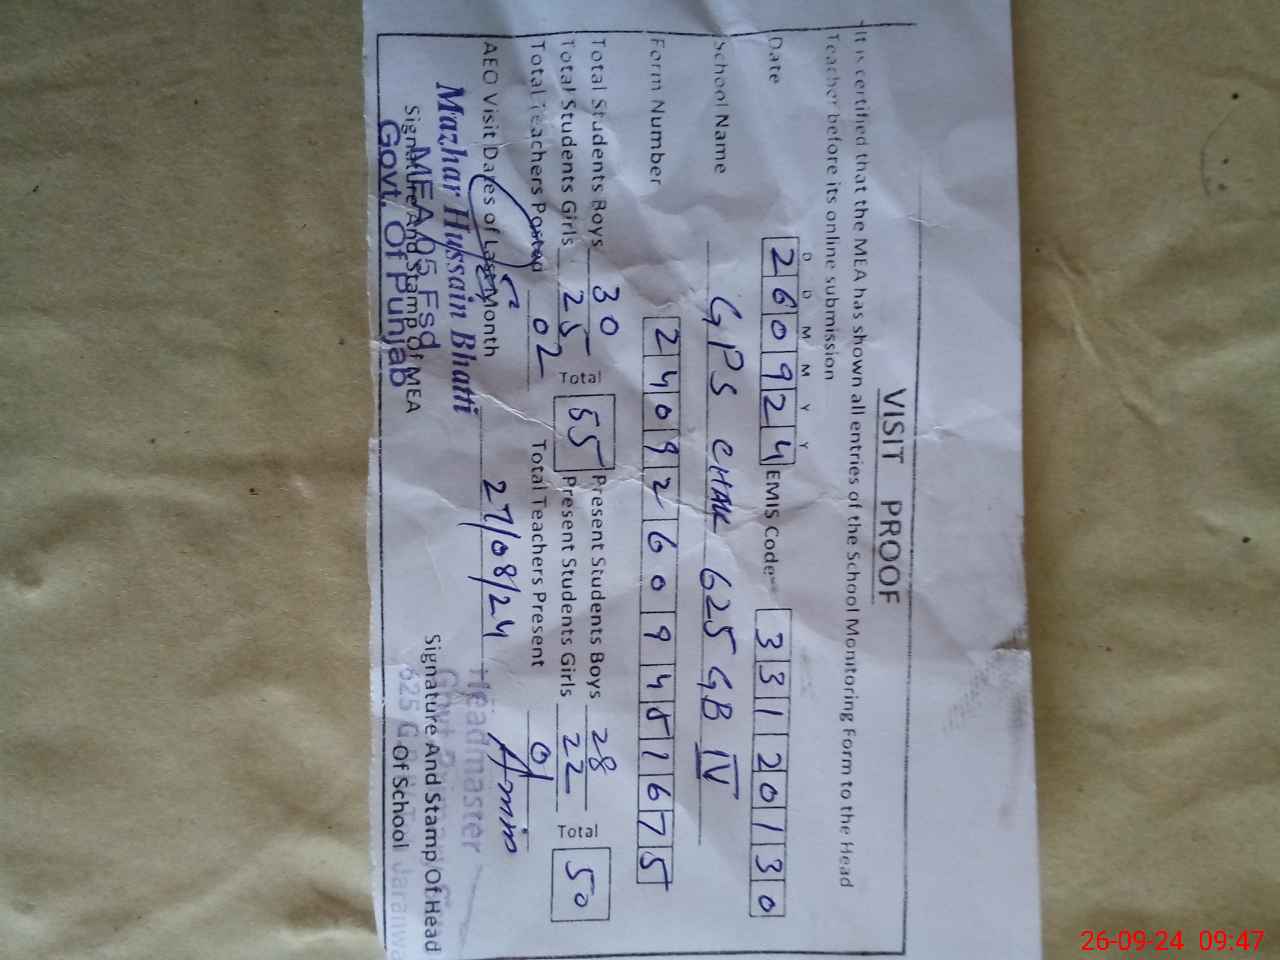 VISIT PROOF
It is certified that the MEA has shown all entries of the School Monitoring Form to the Head
Teacher before its online submission
D D M M Y Y
Date 260924 EMIS Code 33120130
School Name GPS CHAK 625 GB IV
Form Number 240926094
Total Students Boys 30 Present Students Boys 28
Total Students Girls 25 Total 55 Present Students Girls 22 Total 50
Total Teachers Posted 02 Total Teachers Present 01
AEO Visit Dates of Last Month 27/08/24
Amin
Mazhar Hussain Bhatti
MEA 05 Fsd
Govt. Of Punjab
Signature And Stamp Of MEA
Headmaster
Signature And Stamp Of Head
Of School
625 G.B Jaranwa
26-09-24 09:47